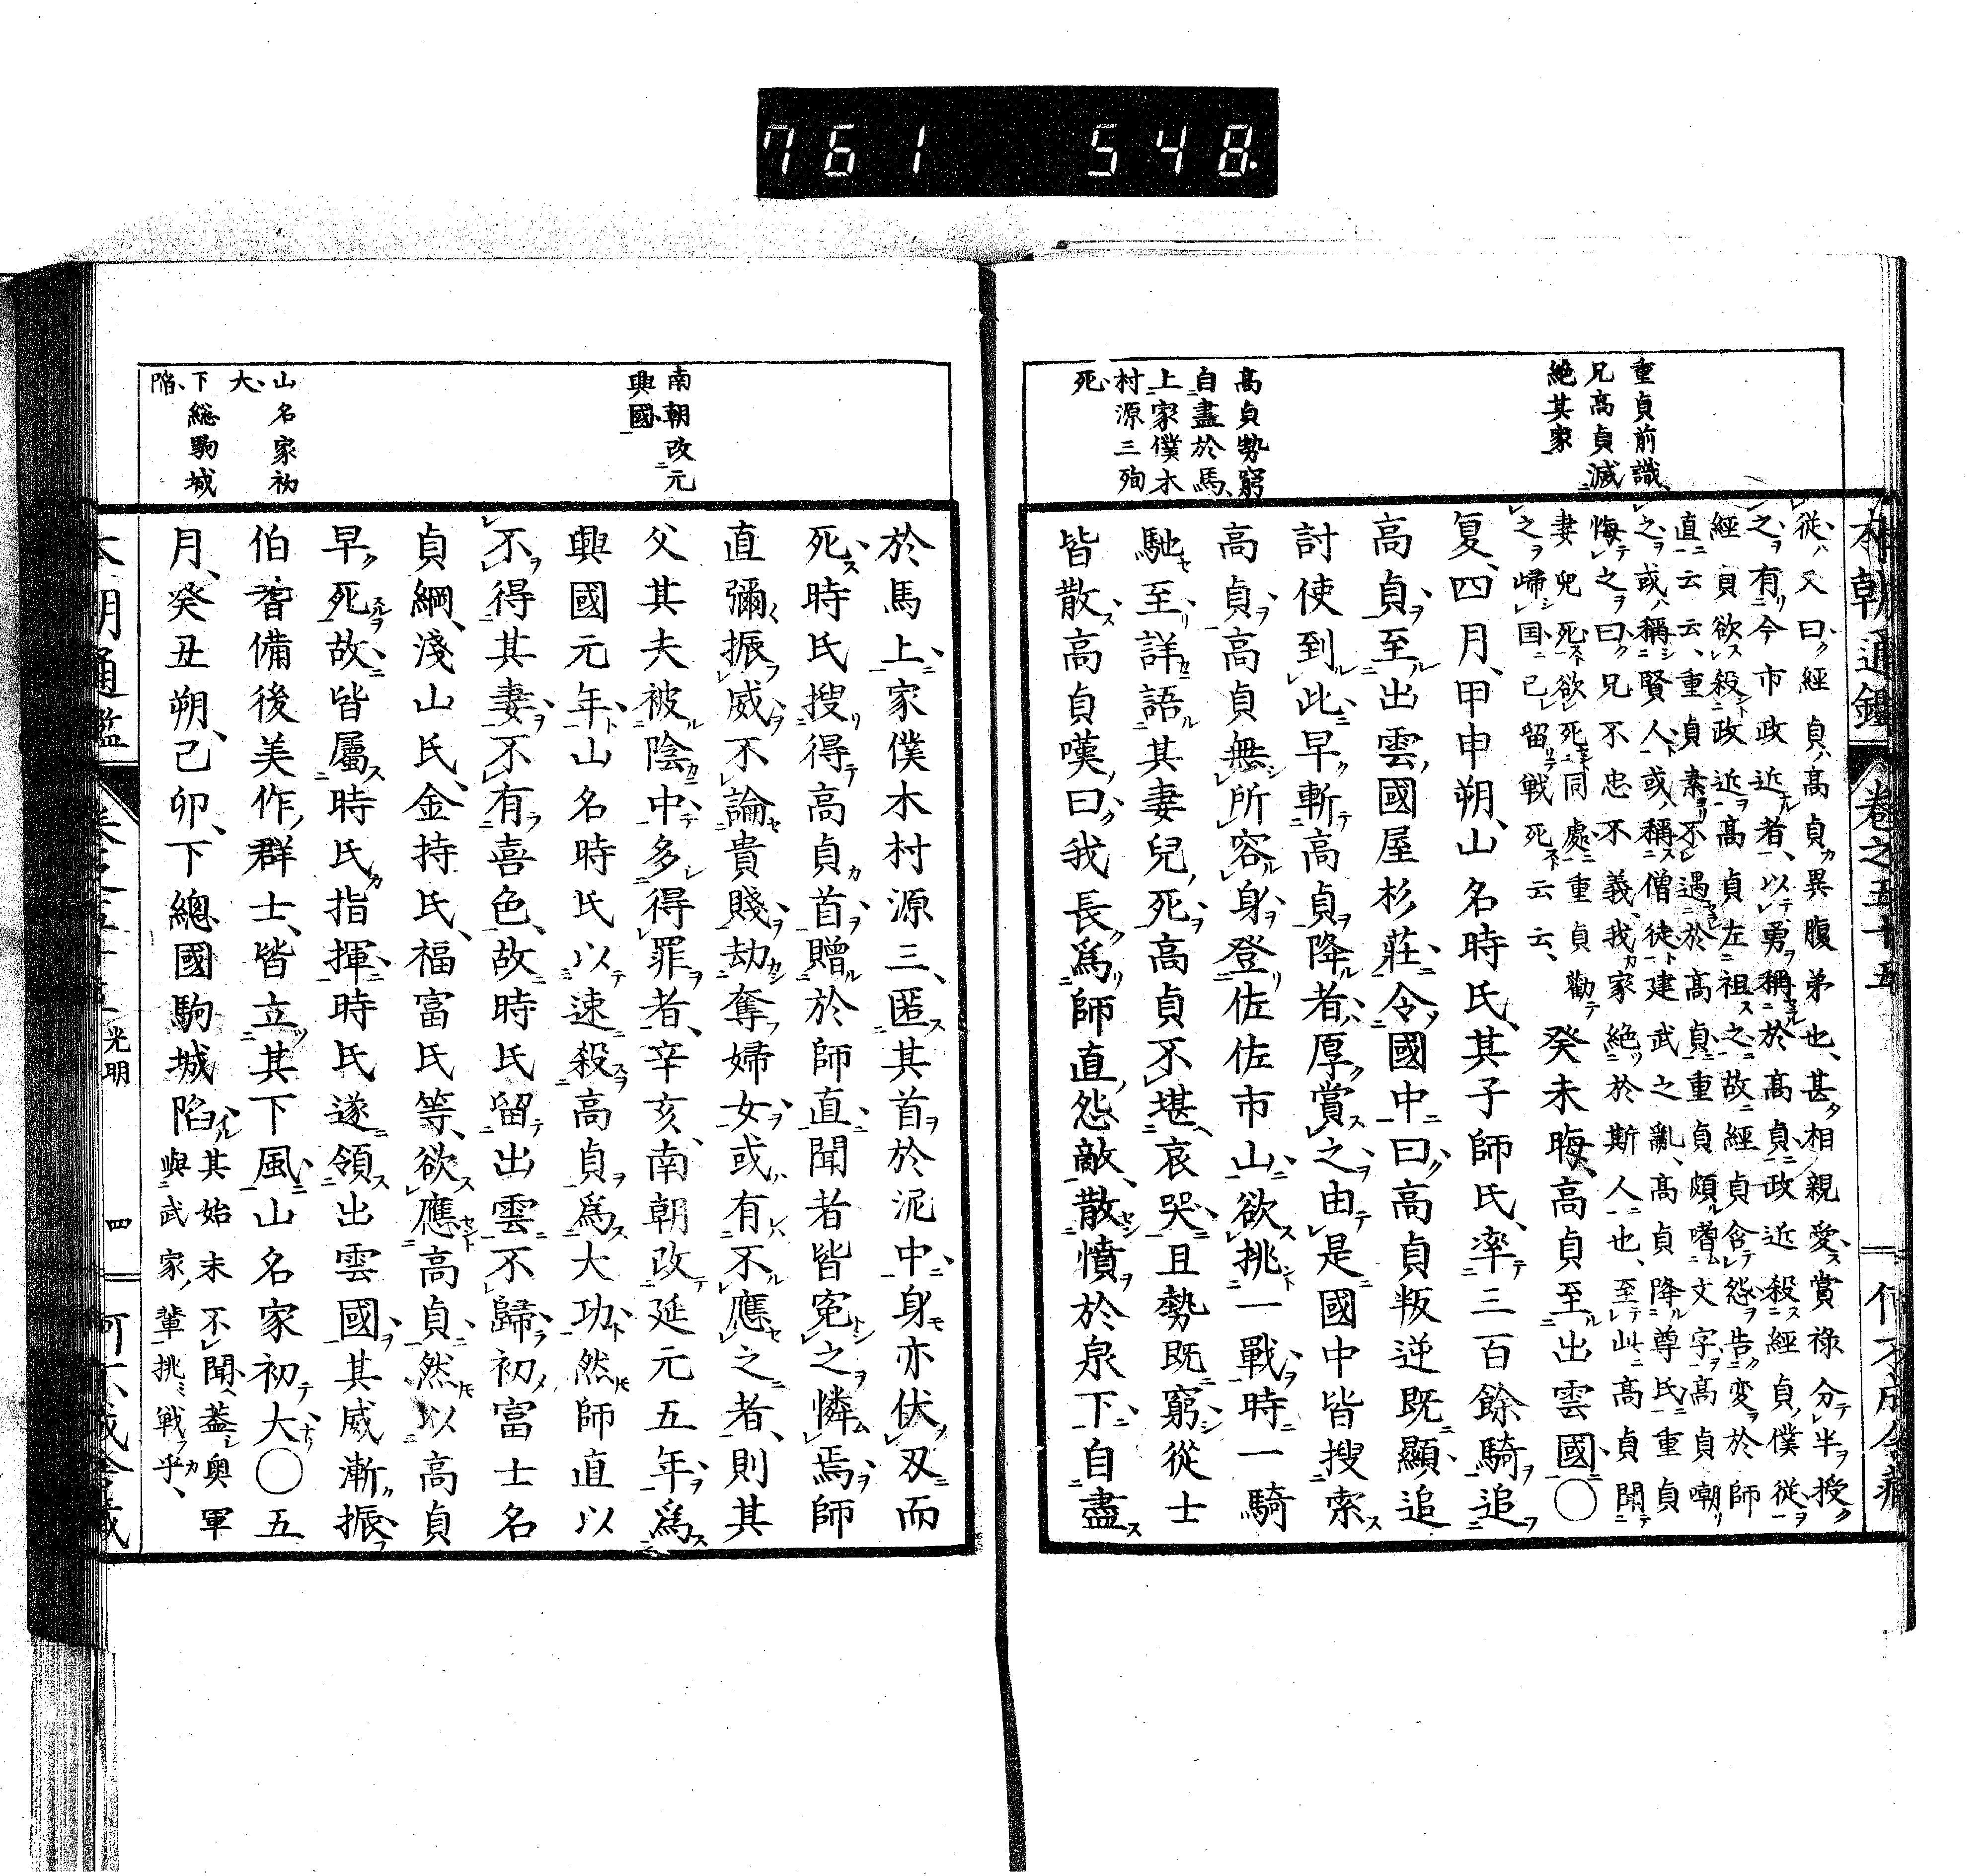 761 548
本朝通鑑 卷之五十五
重貞前識
兄高貞滅
絶其家
高貞勢窮
自盡於馬
上家僕木
村源三殉
死
從又曰經貞高貞異腹弟也甚相親愛賞祿分半授
之有今市政近者以勇稱於高貞政近殺經貞僕從
經貞欲殺政近高貞左祖之故經貞含怨告変於師
直云云重貞素不遇於高貞重貞頗嗜文字高貞嘲
之或稱賢人或稱僧徒建武之亂高貞降尊氏重貞
悔之曰兄不忠不義我家絶於斯人也至此高貞聞
妻兒死欲死同處重貞勸
之歸国已留戦死云云
癸未晦高貞至出雲國〇
夏四月甲申朔山名時氏其子師氏率三百餘騎追
高貞至出雲國屋杉莊令國中曰高貞叛逆既顯追
討使到此早斬高貞降者厚賞之由是國中皆搜索
高貞高貞無所容身登佐佐市山欲挑一戰時一騎
馳至詳語其妻兒死高貞不堪哀哭且勢既窮從士
皆散高貞嘆曰我長爲師直怨敵散憤於泉下自盡
南朝改元
興國
山名家初
大
下総駒城
陷
於馬上家僕木村源三匿其首於泥中身亦伏刄而
死時氏搜得高貞首贈於師直聞者皆寃之憐焉師
直彌振威不論貴賤劫奪婦女或有不應之者則其
父其夫被陰中多得罪者辛亥南朝改延元五年爲
興國元年山名時氏以速殺高貞爲大功然師直以
不得其妻不有喜色故時氏留出雲不歸初富士名
貞綱淺山氏金持氏福富氏等欲應高貞然以高貞
早死故皆屬時氏指揮時氏遂領出雲國其威漸振
伯耆備後美作群士皆立其下風山名家初大〇五
月癸丑朔己卯下總國駒城陷
其始末不聞蓋奥軍
與武家輩挑戦乎
光明
四